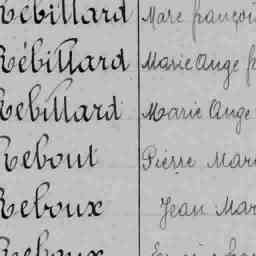 Rébillard Marc françois
Rébillard Marie Ange
Rebillard Marie Ange
Rebout Pierre Mari
Reboux Jean Mar
Reboux